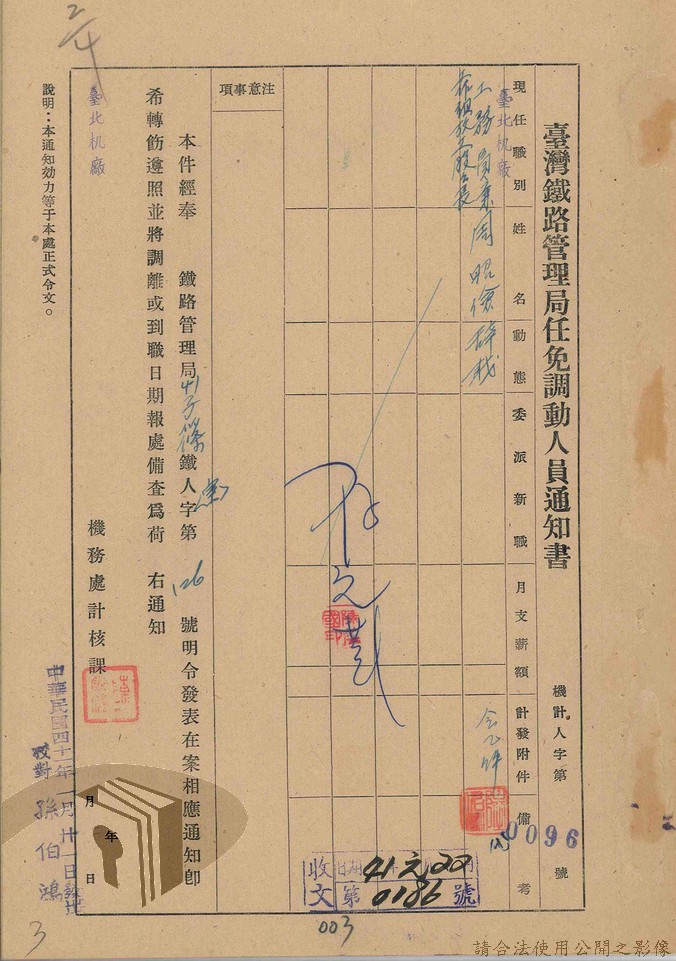 臺灣鐵路管理局任免調動人員通知書
機計人字第0096號
現任職別
姓名
動態
委派新職
月支薪額
計發附件
備考
臺北机廠
工務員兼
周昭儉
辭職
令乙件
注意事項
本件經奉 鐵路管理局 鐵人字第126號明令發表在案相應通知卽
希轉飭遵照並將調離或到職日期報處備查爲荷 右通知
臺北机廠
機務處計核課
中華民國四十一年一月廿一日發出
校對 孫伯鴻
年
月
日
說明：本通知効力等于本處正式令文。
收文
日期 41元22
第0186號
003
3
請合法使用公開之影像